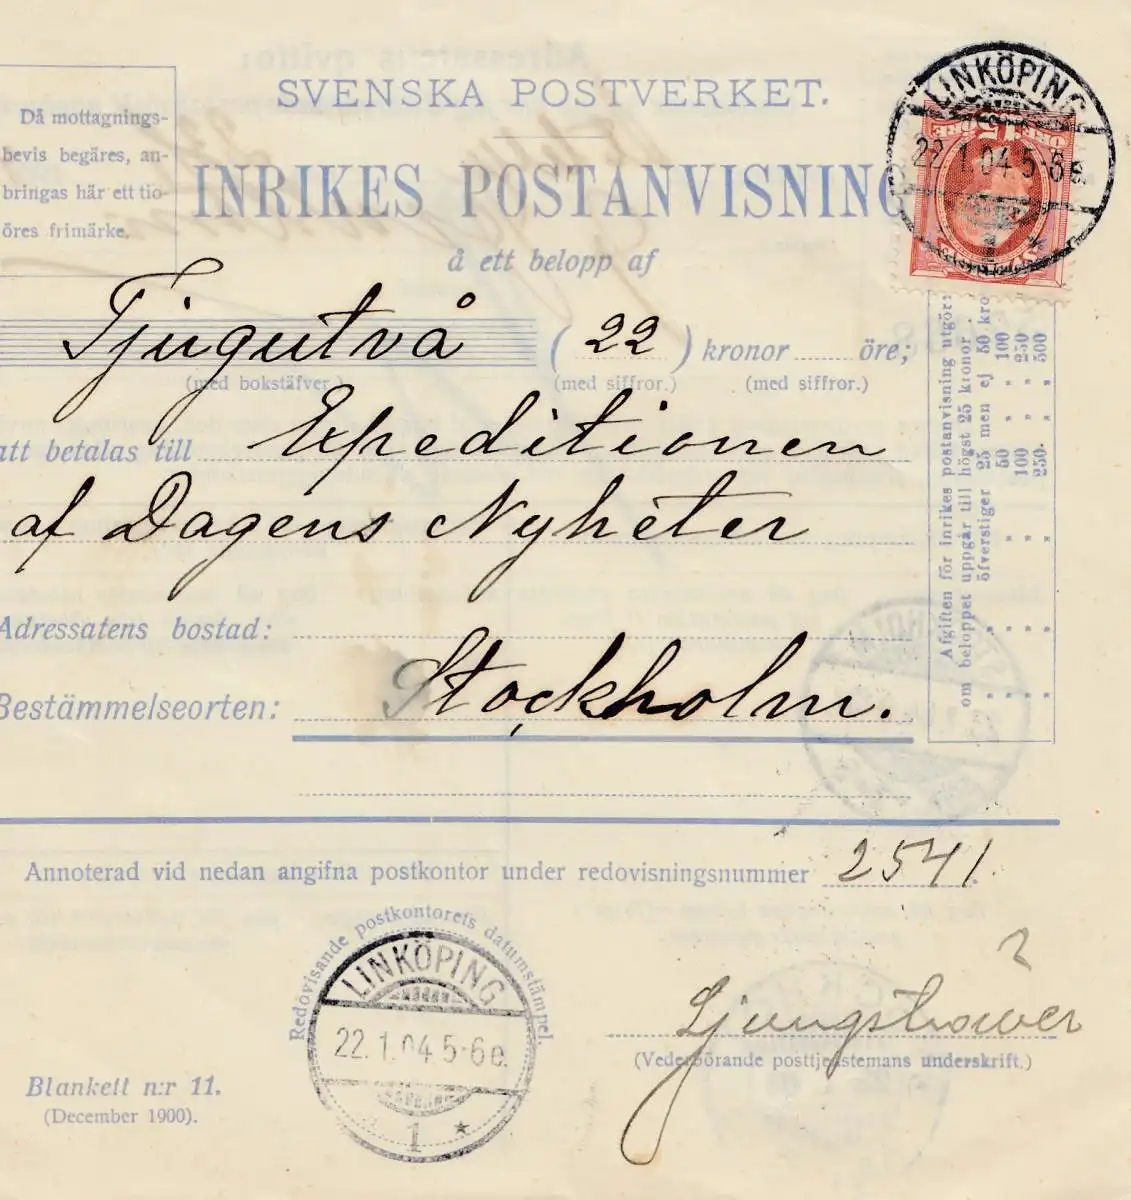 SVENSKA POSTVERKET.
Då mottagnings-
bevis begäres, an-
bringas här ett tio-
öres frimärke.
INRIKES POSTANVISNING
LINKÖPING
22.1.04.5-6e.
15
ÖRE
å ett belopp af
Tjugutvå (22) kronor öre;
(med bokstäfver) (med siffror.) (med siffror.)
att betalas till Expeditionen
af Dagens Nyheter
Adressatens bostad:
Bestämmelseorten: Stockholm.
Afgiften för inrikes postanvisning utgör:
om beloppet uppgår till högst 25 kronor
öfverstiger 25 men ej 50 kro
" 50 " " 100
" 100 " " 250
" 250. " " 500
Annoterad vid nedan angifna postkontor under redovisningsnummer 2541.
Redovisande postkontorets datumstämpel.
LINKÖPING
22.1.04 5-6e.
1 *
(Vederbörande posttjenstemans underskrift.)
Blankett n:r 11.
(December 1900).